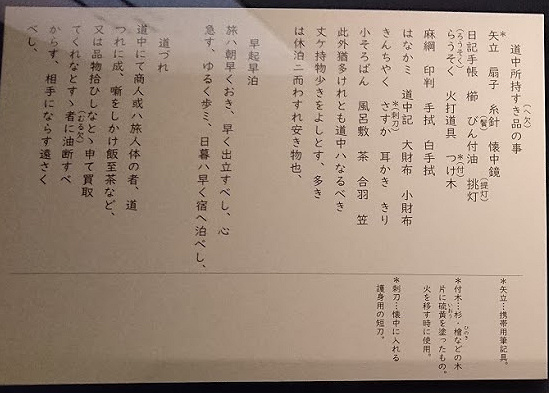 道中所持すき品の事
（へ欠）
矢立　扇子　糸針　懐中鏡
＊
日記手帳　櫛　びん付油　挑灯
（鬢）
（提灯）
らうそく　火打道具　つけ木
（ろうそく）
＊（付）
麻綱　印判　手拭　白手拭
はなかミ　道中記　大財布　小財布
きんちやく　さすか　耳かき　きり
＊（刺刀）
小そろばん　風呂敷　茶　合羽　笠
此外猶多けれとも道中ハなるべき
丈ケ持物少きをよしとす、多き
は休泊ニ而わすれ安き物也、
早起早泊
旅ハ朝早くおき、早く出立すべし、心
急す、ゆるく歩ミ、日暮ハ早く宿へ泊べし、
道づれ
道中にて商人或ハ旅人体の者、道
つれに成、噺をしかけ飯至茶など、
又は品物拾ひしなとゝ申て買取
てくれなとすゝ者に油断すべ
（むる欠）
からす、相手にならす遠さく
べし、
＊矢立…携帯用筆記具。
＊付木…杉・檜などの木
ひのき
片に硫黄を塗ったもの。
いおう
火を移す時に使用。
＊刺刀…懐中に入れる
護身用の短刀。